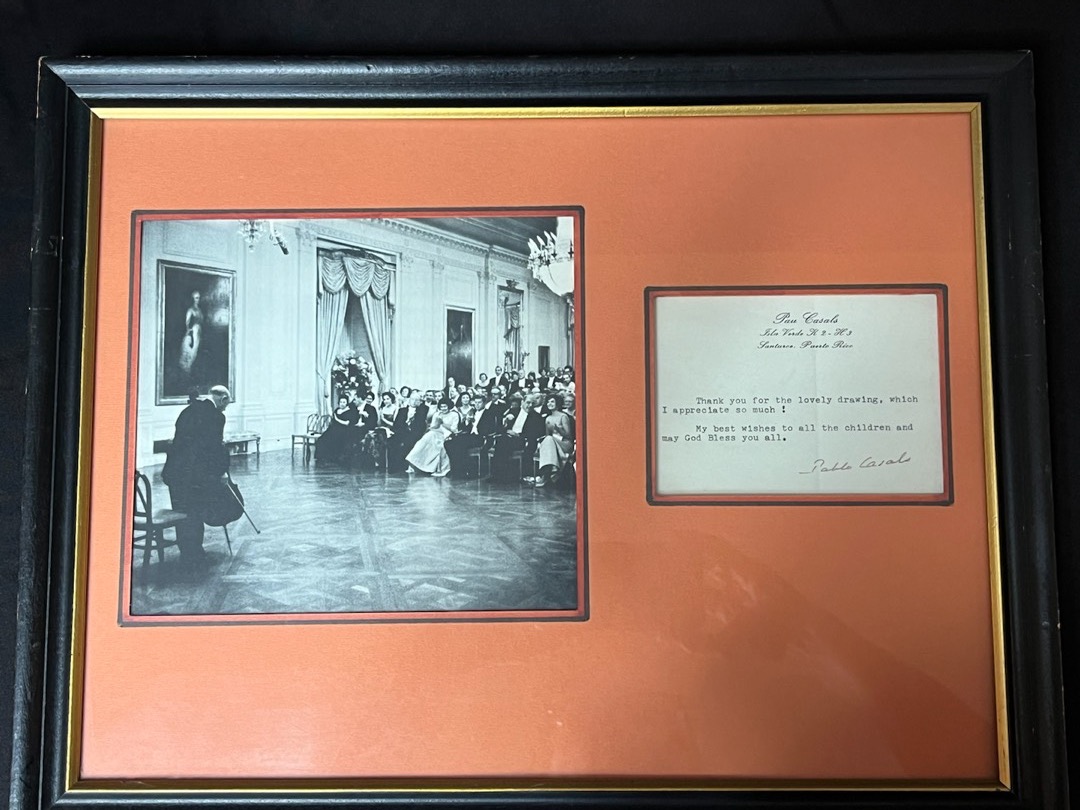 Pau Casals
Isla Verde K 2 - H 3
Santurce, Puerto Rico
Thank you for the lovely drawing, which
I appreciate so much !
My best wishes to all the children and
may God Bless you all.
Pablo Casals